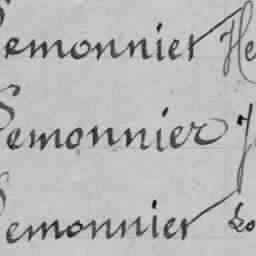 Lemonnier He
Lemonnier J
Lemonnier Lo